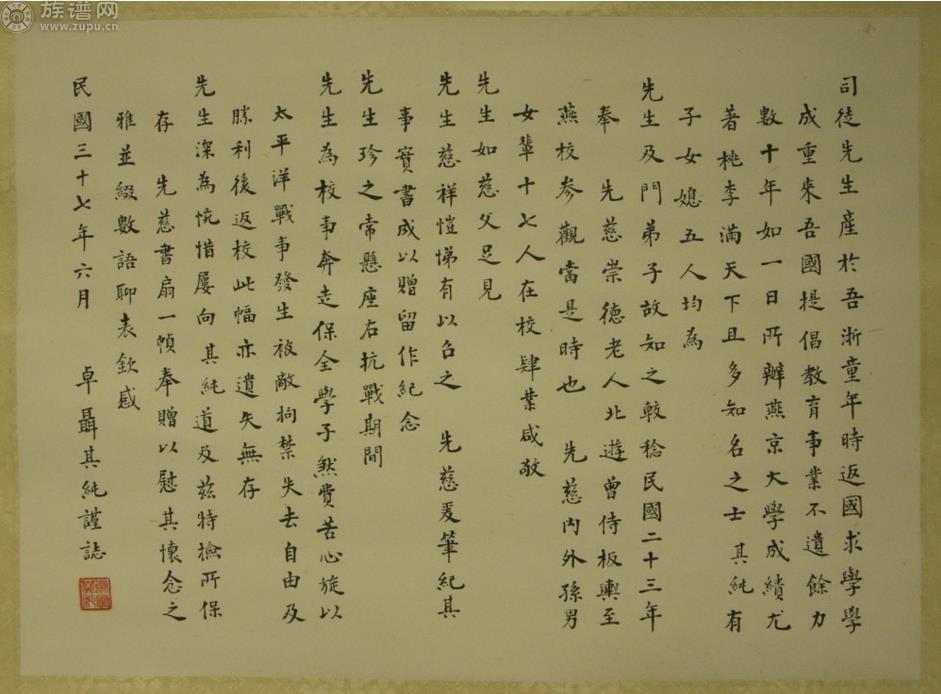 族谱网
www.zupu.cn
司徒先生產於吾浙童年時返國求學學
成重來吾國提倡教育事業不遺餘力
數十年如一日所辦燕京大學成績尤
著桃李滿天下且多知名之士 其純有
子女媳五人均為
先生及門弟子故知之較稔民國二十三年
奉 先慈崇德老人北遊曾侍板輿至
燕校參觀當是時也 先慈內外孫男
女輩十七人在校肄業咸敬
先生如慈父足見
先生慈祥愷悌有以召之 先慈爰筆紀其
事實書成以贈留作紀念
先生珍之常懸座右抗戰期間
先生為校事奔走保全學子煞費苦心旋以
太平洋戰事發生被敵拘禁失去自由及
勝利後返校此幅亦遺失無存
先生深為惋惜屢向 其純道及茲特撿所保
存 先慈書扇一幀奉贈以慰 其懷念之
雅並綴數語聊表欽感
民國三十七年六月 卓聶其純謹誌